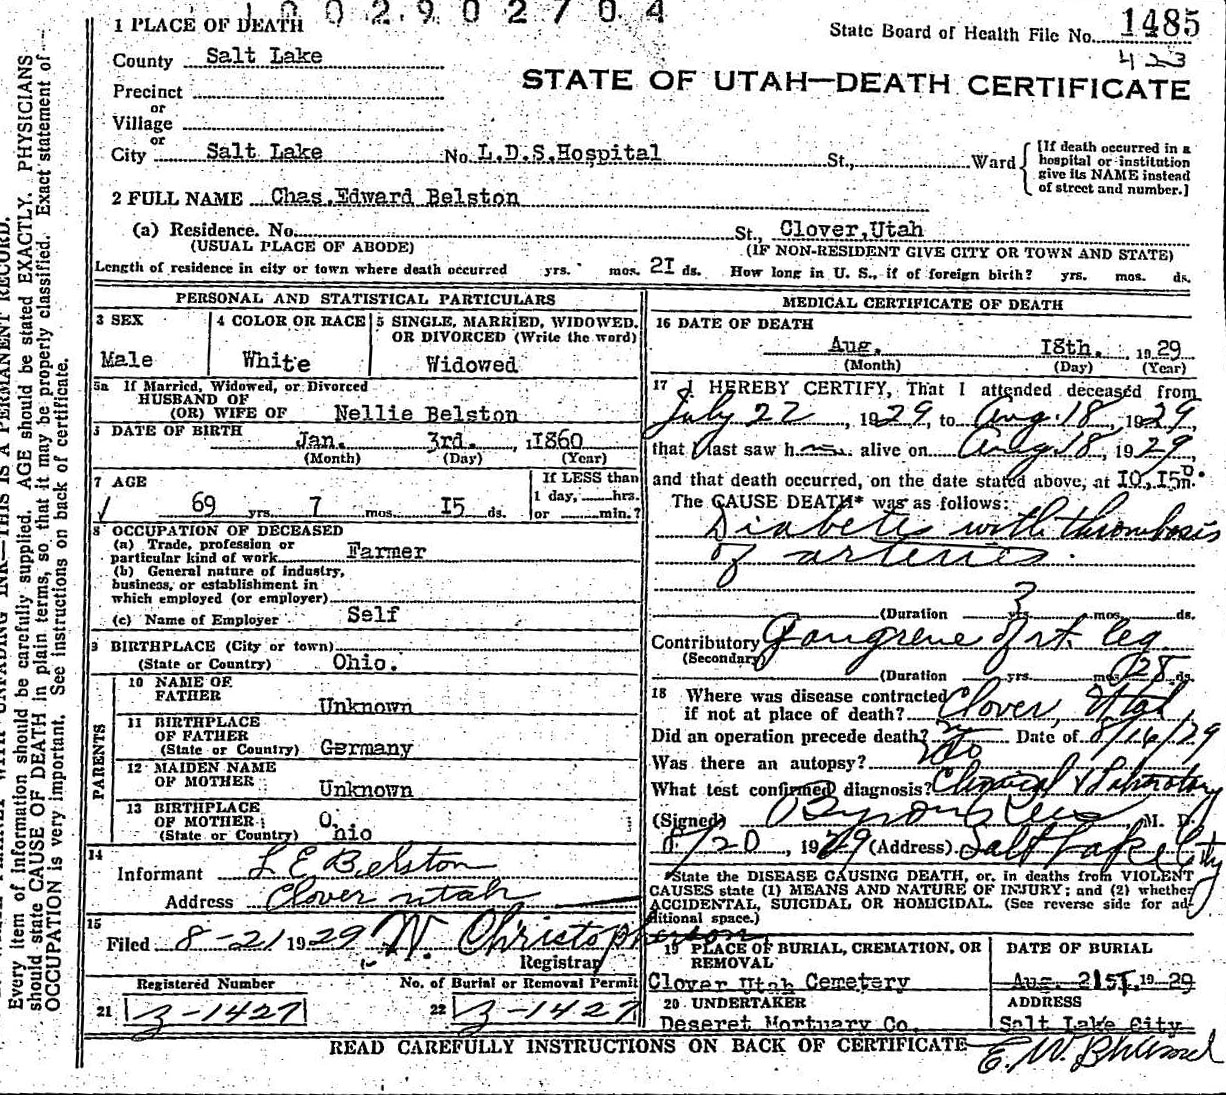 1002902704
1 PLACE OF DEATH
State Board of Health File No. 1485
423
County Salt Lake
STATE OF UTAH—DEATH CERTIFICATE
Precinct
or
Village
or
City Salt Lake No. L.D.S.Hospital St., Ward
[If death occurred in a
hospital or institution
give its NAME instead
of street and number.]
2 FULL NAME Chas.Edward Belston
(a) Residence. No. St., Clover,Utah
(USUAL PLACE OF ABODE) (IF NON-RESIDENT GIVE CITY OR TOWN AND STATE)
Length of residence in city or town where death occurred yrs. mos. 2I ds. How long in U. S., if of foreign birth? yrs. mos. ds.
PERSONAL AND STATISTICAL PARTICULARS
3 SEX
Male
4 COLOR OR RACE
White
5 SINGLE, MARRIED, WIDOWED,
OR DIVORCED (Write the word)
Widowed
5a If Married, Widowed, or Divorced
HUSBAND OF
(OR) WIFE OF Nellie Belston
DATE OF BIRTH
Jan. 3rd. ,1860
(Month) (Day) (Year)
7 AGE
69 yrs. 7 mos. I5 ds.
If LESS than
1 day, hrs.
or min.?
8 OCCUPATION OF DECEASED
(a) Trade, profession or
particular kind of work Farmer
(b) General nature of industry,
business, or establishment in
which employed (or employer)
(c) Name of Employer Self
9 BIRTHPLACE (City or town)
(State or Country) Ohio.
PARENTS
10 NAME OF
FATHER Unknown
11 BIRTHPLACE
OF FATHER
(State or Country) Germany
12 MAIDEN NAME
OF MOTHER Unknown
13 BIRTHPLACE
OF MOTHER
(State or Country) Ohio
14
Informant L E Belston
Address Clover utah
15
Filed 8-21 1929 W Christopherson
Registrar
Registered Number No. of Burial or Removal Permit
21 3-1427 22 3-1427
MEDICAL CERTIFICATE OF DEATH
16 DATE OF DEATH
Aug. I8th. 1929
(Month) (Day) (Year)
17 I HEREBY CERTIFY, That I attended deceased from
July 22, 1929, to Aug. 18, 1929,
that I last saw h alive on Aug 18, 1929
and that death occurred, on the date stated above, at I0,I5
The CAUSE DEATH* was as follows:
Diabetes with thrombosis
of arteries.
(Duration 3 yrs. mos. ds.
Contributory Gangrene of rt. leg
(Secondary)
(Duration yrs. mos. 28 ds.
18 Where was disease contracted
if not at place of death? Clover, Utah
Did an operation precede death? Date of 8/16/29
Was there an autopsy? No
What test confirmed diagnosis? Clinical & Laboratory
(Signed) M. D.
8/20, 1929 (Address) Salt Lake City
*State the DISEASE CAUSING DEATH, or, in deaths from VIOLENT
CAUSES state (1) MEANS AND NATURE OF INJURY; and (2) whether
ACCIDENTAL, SUICIDAL OR HOMICIDAL. (See reverse side for ad-
ditional space.)
19 PLACE OF BURIAL, CREMATION, OR
REMOVAL
Clover Utah Cemetery
DATE OF BURIAL
Aug. 2IST. 1929
20 UNDERTAKER
Deseret Mortuary Co.
ADDRESS
Salt Lake City
READ CAREFULLY INSTRUCTIONS ON BACK OF CERTIFICATE
E. W.
UNFADING INK—THIS IS A PERMANENT RECORD.
Every item of information should be carefully supplied. AGE should be stated EXACTLY. PHYSICIANS
should state CAUSE OF DEATH in plain terms, so that it may be properly classified. Exact statement of
OCCUPATION is very important. See instructions on back of certificate.